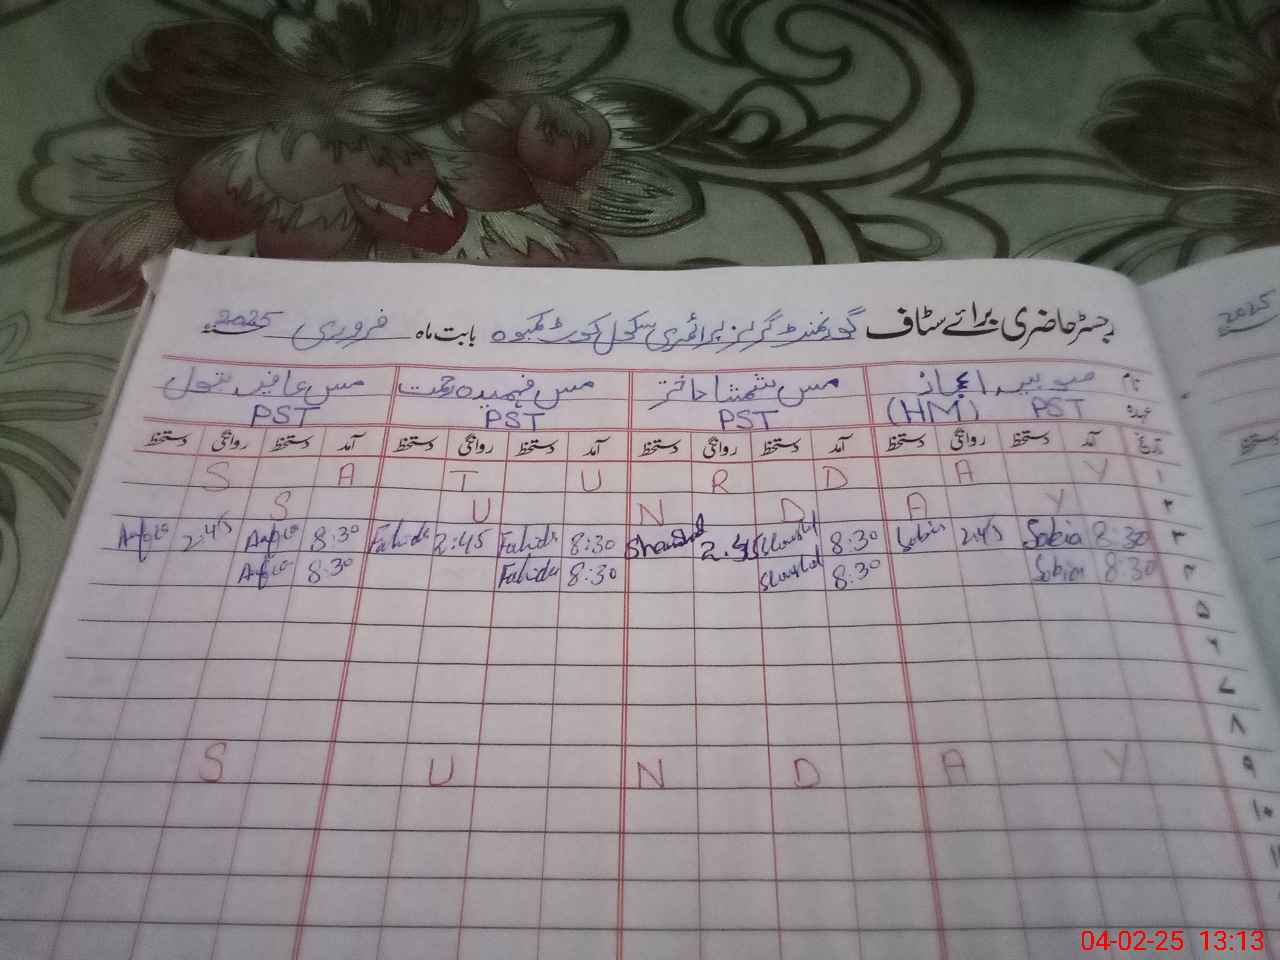 رجسٹر حاضری برائے سٹاف گورنمنٹ گرلز پرائمری سکول کوٹ کمبوہ بابت ماہ فروری 2025
2025
نام صوبیہ اعجاز مس شمشاد اختر مس فہمیدہ رحمت مس عافیہ بتول
عہدہ PST (HM) PST PST PST
تاریخ آمد دستخط روانگی دستخط آمد دستخط روانگی دستخط آمد دستخط روانگی دستخط آمد دستخط روانگی دستخط
۱ S A T U R D A Y
۲ S U N D A Y
۳ 8:30 Sobia 2:45 Sobia 8:30 Shamshad 2:45 Shamshad 8:30 Fahida 2:45 Fahida 8:30 2:45
۴ 8:30 Sobia 8:30 Shamshad 8:30 Fahida 8:30
۵
۶
۷
۸
۹ S U N D A Y
۱۰
۱۱
04-02-25 13:13